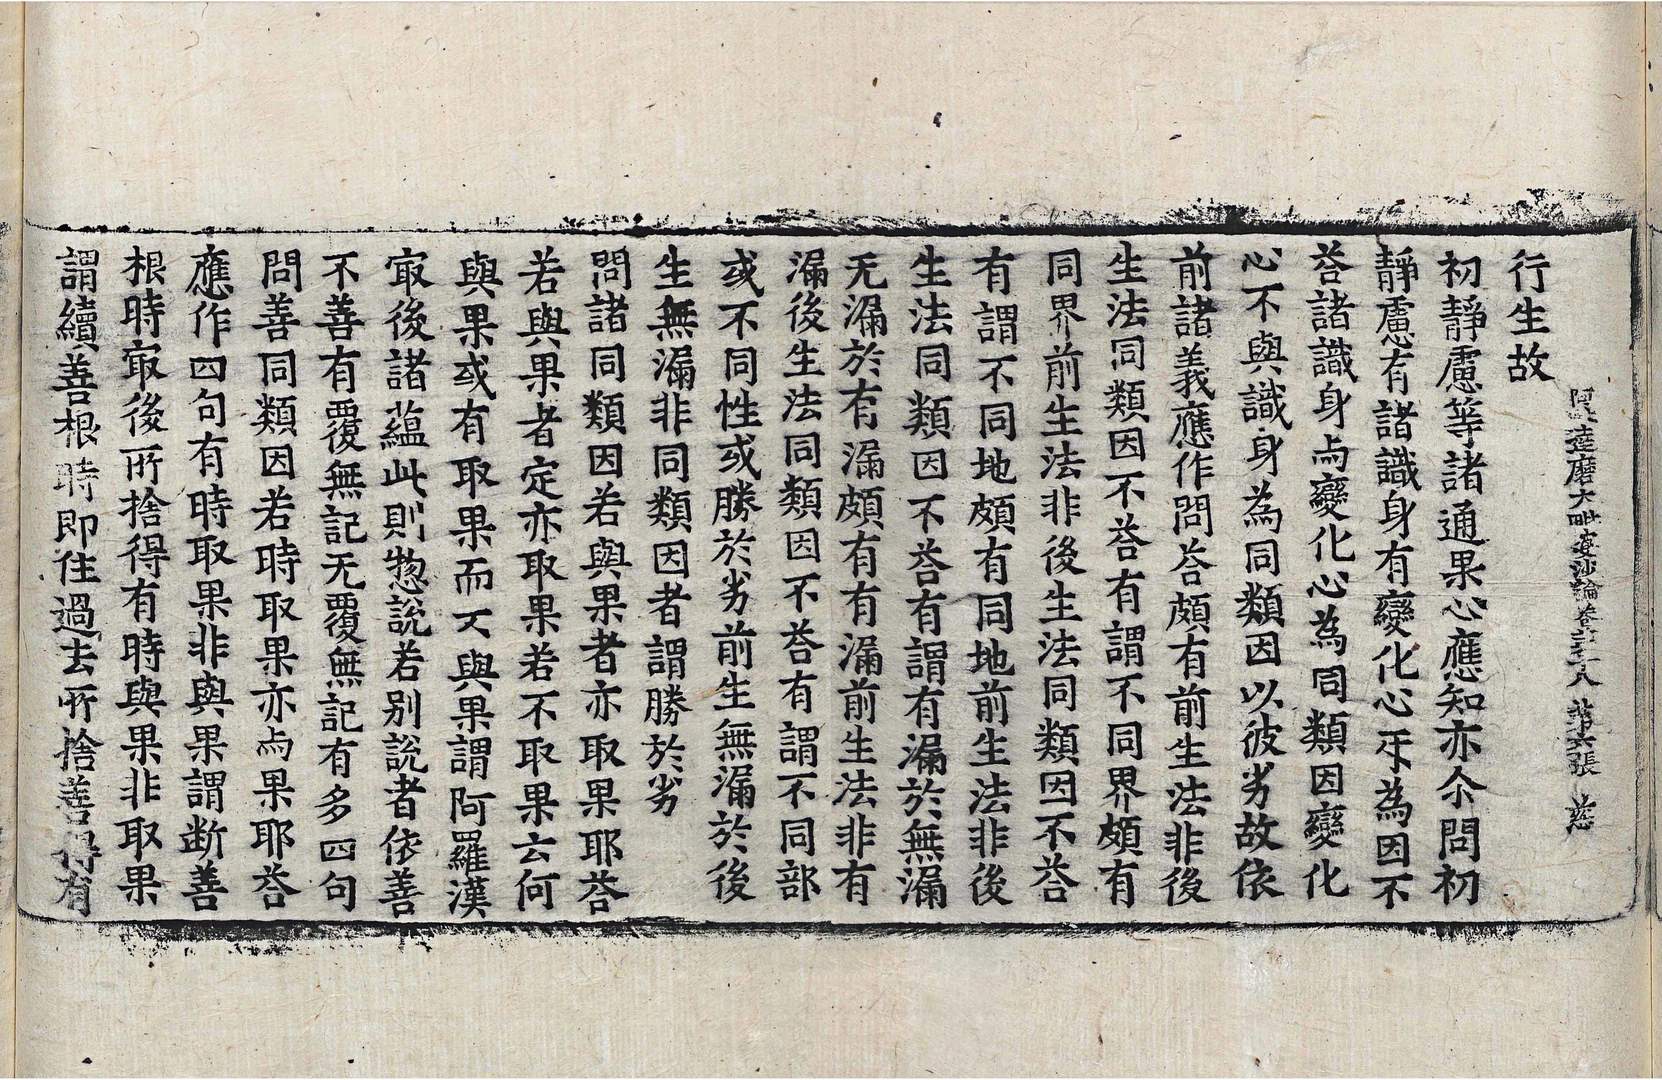 阿毗達磨大毗婆沙論卷第十八 第六張 慈
行生故
初靜慮等諸通果心應知亦尒問初
靜慮有諸識身有變化心䇦為因不
荅諸識身与變化心為同類因變化
心不與識身為同類因以彼劣故依
前諸義應作問荅頗有前生法非後
生法同類因不荅有謂不同界頗有
同界前生法非後生法同類因不荅
有謂不同地頗有同地前生法非後
生法同類因不荅有謂有漏於無漏
无漏於有漏頗有有漏前生法非有
漏後生法同類因不荅有謂不同部
或不同性或勝於劣前生無漏於後
生無漏非同類因者謂勝於劣
問諸同類因若與果者亦取果耶荅
若與果者定亦取果若不取果云何
與果或有取果而不與果謂阿羅漢
㝡後諸蘊此則惣說若别說者依善
不善有覆無記无覆無記有多四句
問善同類因若時取果亦与果耶荅
應作四句有時取果非與果謂断善
根時㝡後所捨得有時與果非取果
謂續善根時即住過去所捨善得有